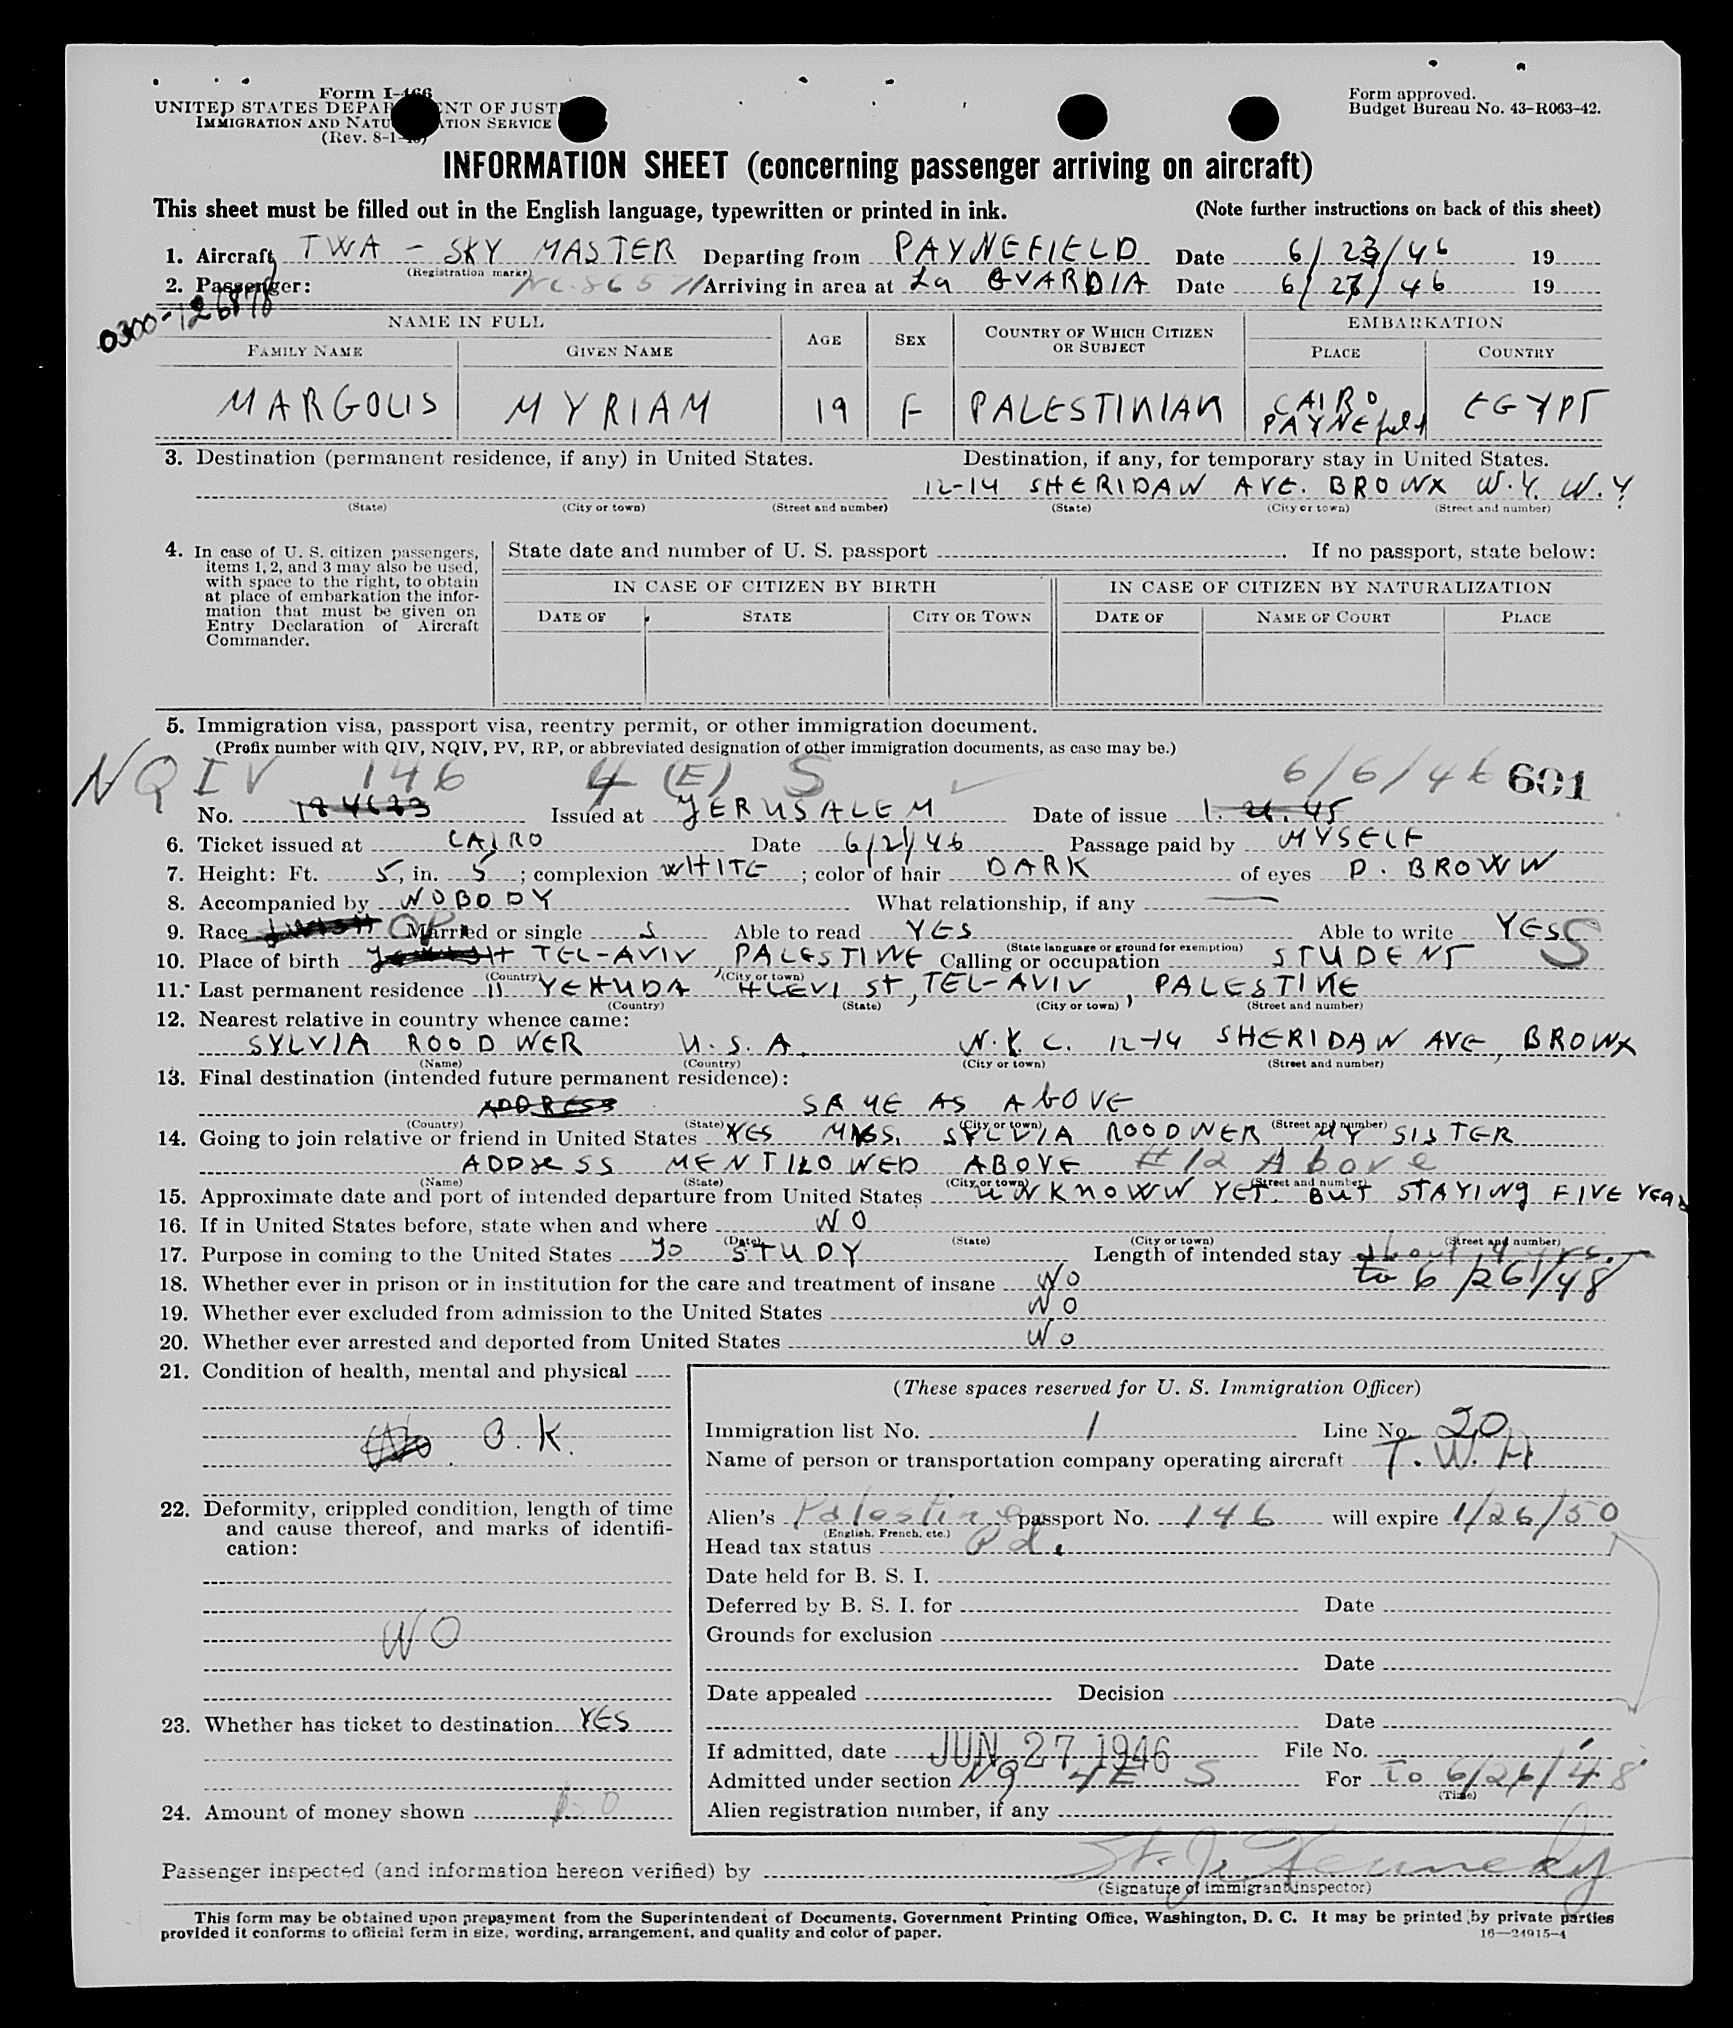 Form I-466
UNITED STATES DEPARTMENT OF JUSTICE
IMMIGRATION AND NATURALIZATION SERVICE
(Rev. 8-1-
Form approved.
Budget Bureau No. 43-R063-42.
INFORMATION SHEET (concerning passenger arriving on aircraft)
This sheet must be filled out in the English language, typewritten or printed in ink. (Note further instructions on back of this sheet)
1. Aircraft TWA - SKY MASTER Departing from PAYNEFIELD Date 6/23/46 19
(Registration marks)
2. Passenger: NC-86571 Arriving in area at La GUARDIA Date 6/27/46 19
0300-126878
NAME IN FULL AGE SEX COUNTRY OF WHICH CITIZEN OR SUBJECT EMBARKATION
FAMILY NAME GIVEN NAME PLACE COUNTRY
MARGOLIS MYRIAM 19 F PALESTINIAN CAIRO PAYNEfield EGYPT
3. Destination (permanent residence, if any) in United States. Destination, if any, for temporary stay in United States.
12-14 SHERIDAN AVE. BRONX N.Y. N.Y
(State) (City or town) (Street and number) (State) (City or town) (Street and number)
4. In case of U. S. citizen passengers,
items 1, 2, and 3 may also be used,
with space to the right, to obtain
at place of embarkation the infor-
mation that must be given on
Entry Declaration of Aircraft
Commander.
State date and number of U. S. passport . If no passport, state below:
IN CASE OF CITIZEN BY BIRTH IN CASE OF CITIZEN BY NATURALIZATION
DATE OF STATE CITY OR TOWN DATE OF NAME OF COURT PLACE
5. Immigration visa, passport visa, reentry permit, or other immigration document.
(Prefix number with QIV, NQIV, PV, RP, or abbreviated designation of other immigration documents, as case may be.)
NQIV 146 4 (E) S 6/6/46 601
No. Issued at JERUSALEM Date of issue
6. Ticket issued at CAIRO Date 6/21/46 Passage paid by MYSELF
7. Height: Ft. 5, in. 5 ; complexion WHITE ; color of hair DARK of eyes D. BROWN
8. Accompanied by NOBODY What relationship, if any —
9. Race Married or single S Able to read YES Able to write YES S
(State language or ground for exemption)
10. Place of birth TEL-AVIV PALESTINE Calling or occupation STUDENT
(Country) (City or town)
11. Last permanent residence 11 YEHUDA HLEVI St, TEL-AVIV, PALESTINE
(Country) (State) (City or town) (Street and number)
12. Nearest relative in country whence came:
SYLVIA ROODNER U.S.A. N.Y.C. 12-14 SHERIDAN AVE, BRONX
(Name) (Country) (City or town) (Street and number)
13. Final destination (intended future permanent residence):
ADDRESS SAME AS AbOVE
(Country) (State) (City or town) (Street and number)
14. Going to join relative or friend in United States YES MRS. SYLVIA ROODNER MY SISTER
ADDRESS MENTIONED ABOVE #12 Above
(Name) (State) (City or town) (Street and number)
15. Approximate date and port of intended departure from United States UNKNOWN YET. BUT STAYING FIVE YEARS
16. If in United States before, state when and where NO
(Date) (State) (City or town) (Street and number)
17. Purpose in coming to the United States To STUDY Length of intended stay about 4 yrs.
to 6/26/48
18. Whether ever in prison or in institution for the care and treatment of insane NO
19. Whether ever excluded from admission to the United States NO
20. Whether ever arrested and deported from United States No
21. Condition of health, mental and physical
O.K.
22. Deformity, crippled condition, length of time
and cause thereof, and marks of identifi-
cation:
NO
23. Whether has ticket to destination YES
24. Amount of money shown
(These spaces reserved for U. S. Immigration Officer)
Immigration list No. 1 Line No. 20
Name of person or transportation company operating aircraft T.W.A
Alien's Palestine passport No. 146 will expire 1/26/50
(English, French, etc.)
Head tax status Pd.
Date held for B. S. I.
Deferred by B. S. I. for Date
Grounds for exclusion
Date
Date appealed Decision
Date
If admitted, date JUN 27 1946 File No.
Admitted under section NQ 4E S For To 6/26/48
(Time)
Alien registration number, if any
Passenger inspected (and information hereon verified) by Kennedy
(Signature of immigrant inspector)
This form may be obtained upon prepayment from the Superintendent of Documents, Government Printing Office, Washington, D. C. It may be printed by private parties
provided it conforms to official form in size, wording, arrangement, and quality and color of paper. 16—24915-4